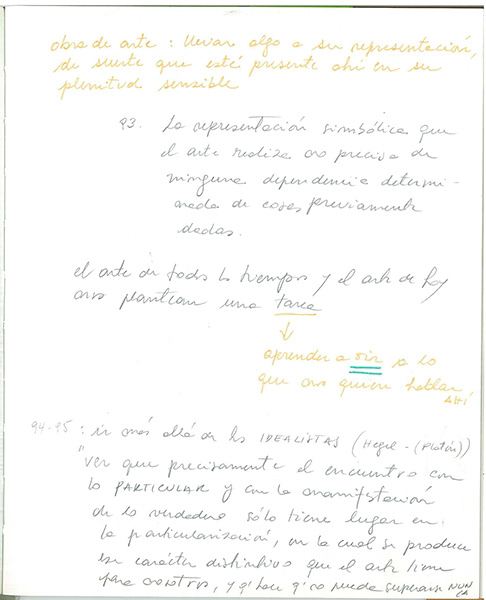 obra de arte : llevar algo a su representación,
de suerte que esté presente ahí en su
plenitud sensible
93. La representación simbólica que
el arte realiza no precisa de
ninguna dependencia determi-
nada de cosas previamente
dadas.
el arte de todos los tiempos y el arte de hoy
nos plantean una tarea
↓
aprender a oir a lo
que nos quiere hablar
AHÍ
94-95 : ir más allá de los IDEALISTAS (Hegel - (Platón))
"ver que precisamente el encuentro con
lo PARTICULAR y con la manifestación
de lo verdadero sólo tiene lugar en
la particularización, en la cual se produce
ese carácter distintivo que el arte tiene
para nosotros, y q' hace q' no pueda superarse NUN
CA